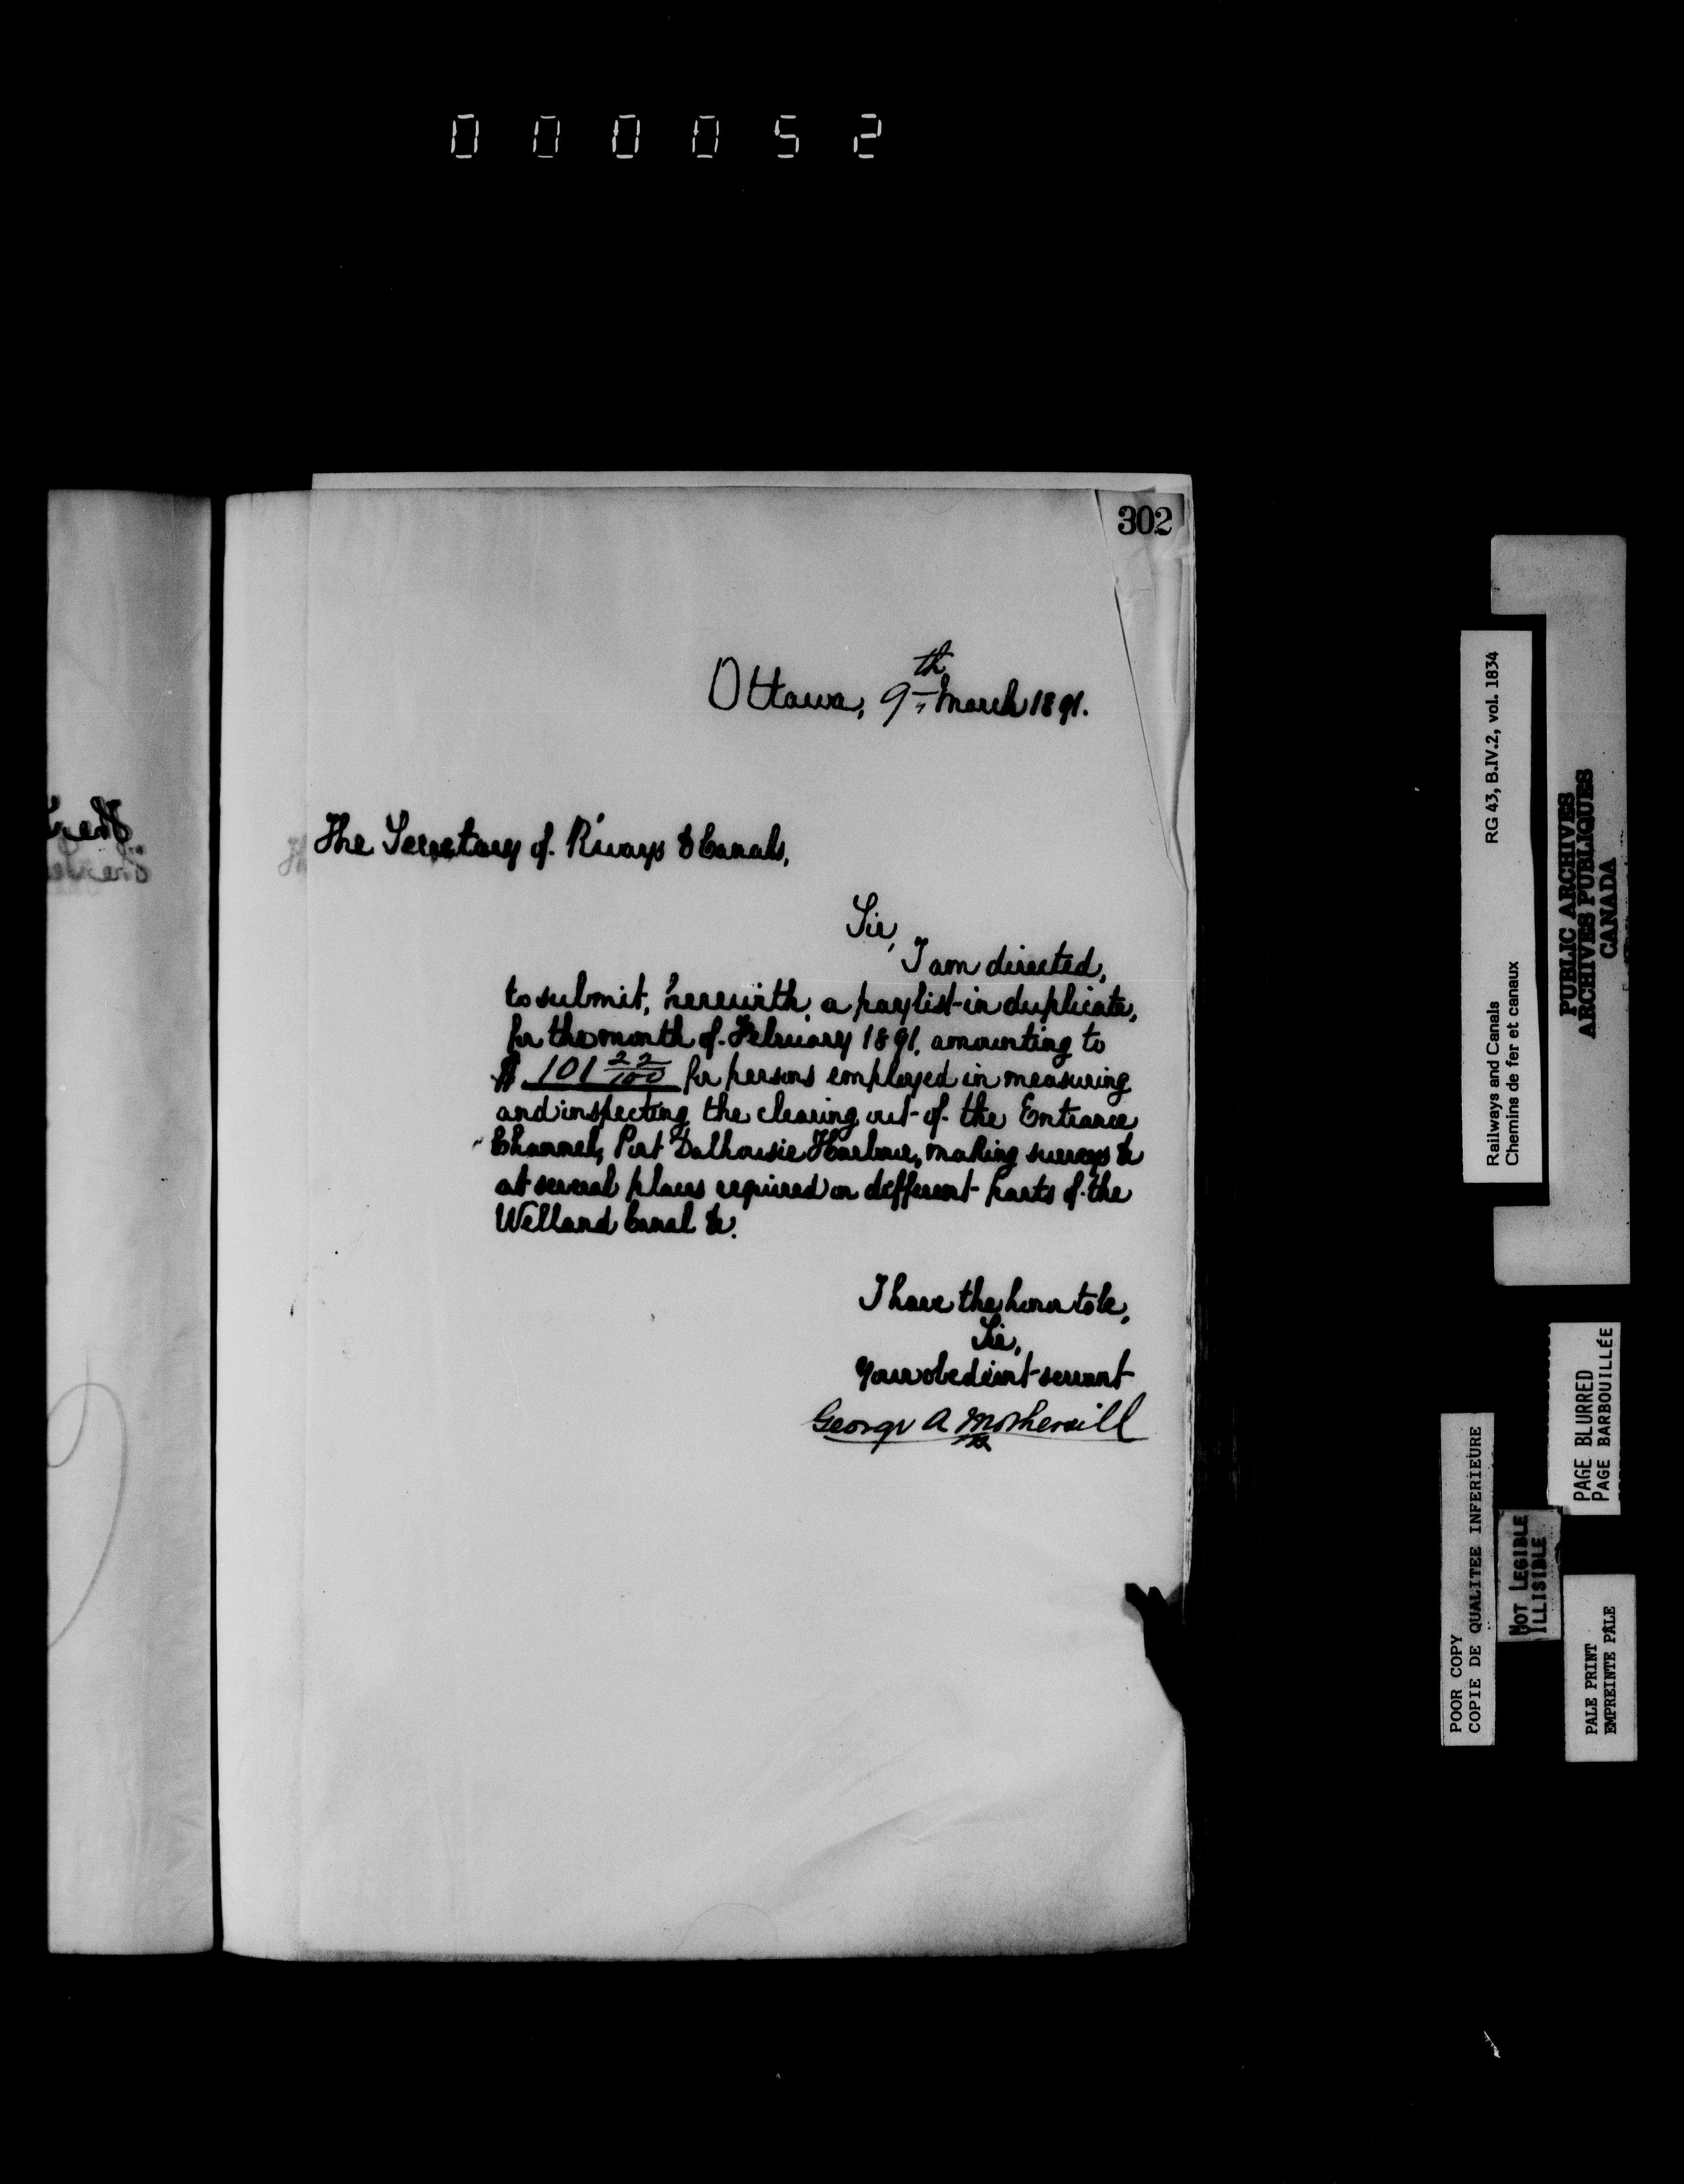 000052
302
Ottawa, 9th March 1891.
The Secretary of R'ways & Canals,
Sir,
I am directed,
to submit, herewith, a paylist in duplicate,
for the month of February 1891, amounting to
$ 101 22/100 for persons employed in measuring
and inspecting the clearing out of the Entrance
Channel, Port Dalhousie Harbour, making surveys &c
at several places required on different parts of the
Welland Canal &c.
I have the honor to be,
Sir,
Your obedient servant
George A Mothersill
Railways and Canals RG 43, B.IV.2, vol. 1834
Chemins de fer et canaux
PUBLIC ARCHIVES
ARCHIVES PUBLIQUES
CANADA
PAGE BLURRED
PAGE BARBOUILLÉE
POOR COPY
COPIE DE QUALITEE INFERIEURE
NOT LEGIBLE
ILLISIBLE
PALE PRINT
EMPREINTE PÂLE